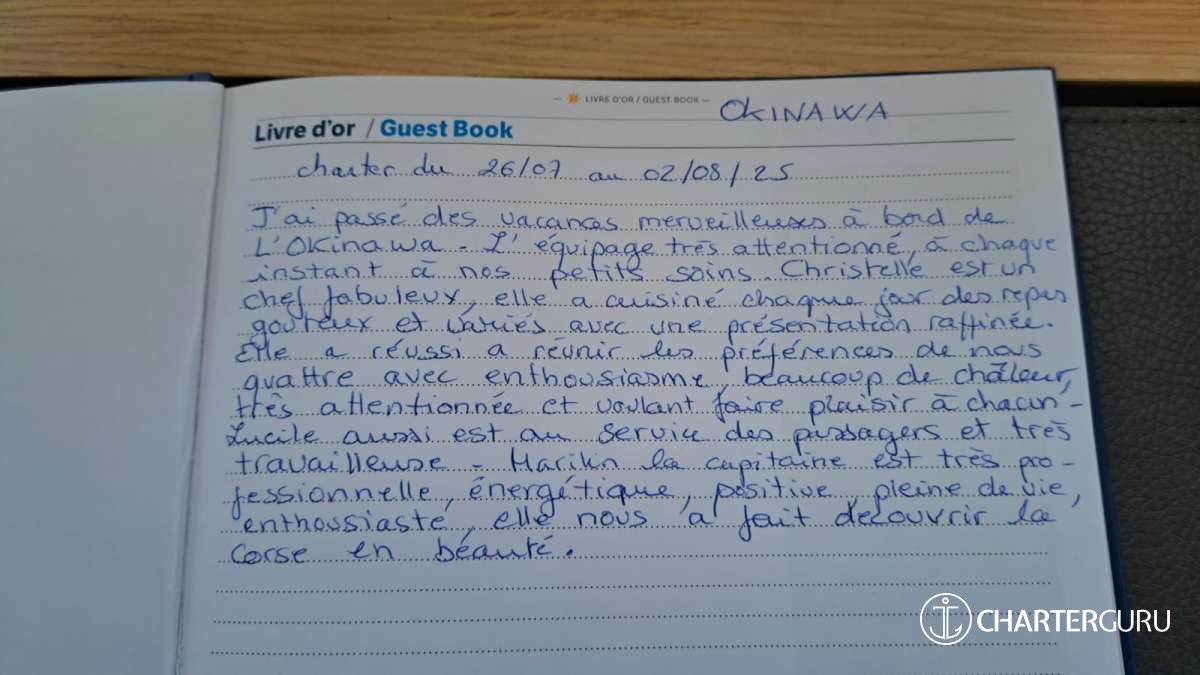 LIVRE D'OR / GUEST BOOK
OKINAWA
Livre d'or / Guest Book
charter du 26/07 au 02/08/25
J'ai passé des vacances merveilleuses à bord de
L'OKinawa. L'équipage très attentionné, à chaque
instant à nos petits soins. Christelle est un
chef fabuleux, elle a cuisiné chaque jour des repas
gouteux et variés avec une présentation raffinée.
Elle a réussi a réunir les préférences de nous
quattre avec enthousiasme, beaucoup de châleur,
très attentionnée et voulant faire plaisir à chacun.
Lucile aussi est au service des passagers et très
travailleuse. Marilin la capitaine est très pro-
fessionnelle, énergétique, positive, pleine de vie,
enthousiaste, elle nous a fait découvrir la
Corse en béauté.
CHARTERGURU